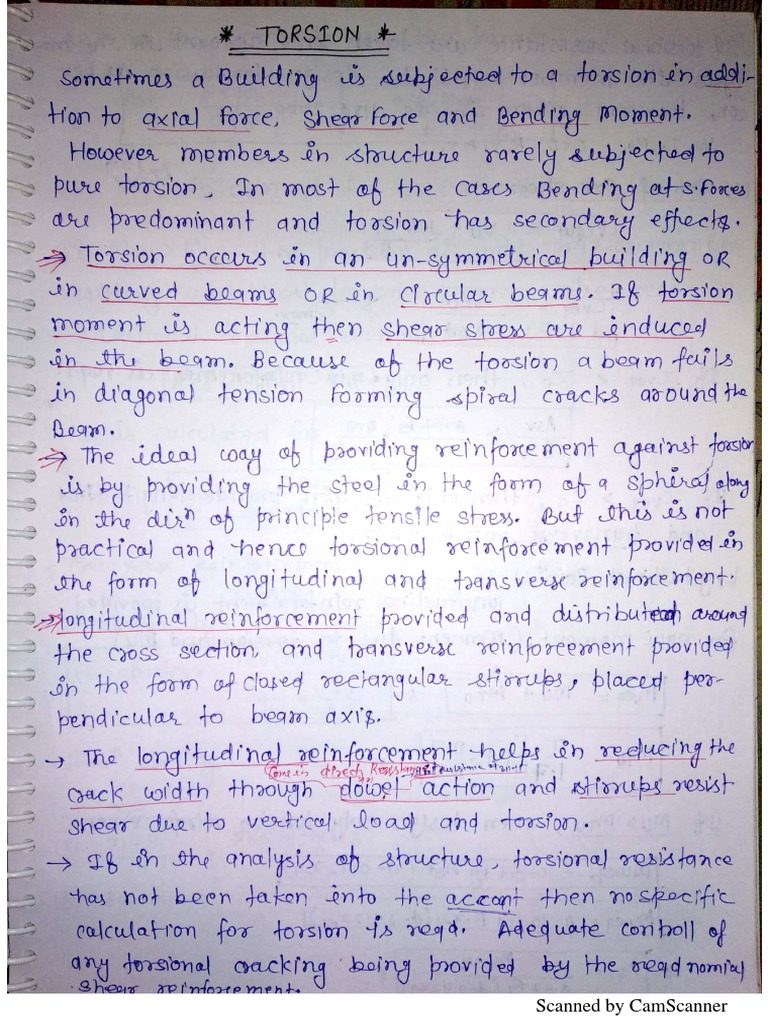 * TORSION *
Sometimes a Building is subjected to a torsion in addi-
tion to axial force, Shear Force and Bending Moment.
However members in structure rarely subjected to
pure torsion, In most of the cases Bending at s.forces
are predominant and torsion has secondary effects.
→ Torsion occcurs in an un-symmetrical building OR
in curved beams OR in Circular beams. If torsion
moment is acting then shear stress are induced
in the beam. Because of the torsion a beam fails
in diagonal tension forming spiral cracks around the
Beam.
→ The ideal way of providing reinforcement against torsion
is by providing the steel in the form of a sphiral along
in the dirⁿ of principle tensile stress. But this is not
practical and hence torsional reinforcement provided in
the form of longitudinal and transverse reinforcement.
→ longitudinal reinforcement provided and distributed around
the cross section, and transverse reinforcement provided
in the form of closed rectangular stirrups, placed per-
pendicular to beam axis.
→ The longitudinal reinforcement helps in reducing the
direct Resistance
crack width through dowel action and stirrups resist
shear due to vertical load and torsion.
→ If in the analysis of structure, torsional resistance
has not been taken into the accont then no specific
calculation for torsion is reqd. Adequate controll of
any torsional cracking being provided by the reqd nomial
shear reinforcement.
Scanned by CamScanner